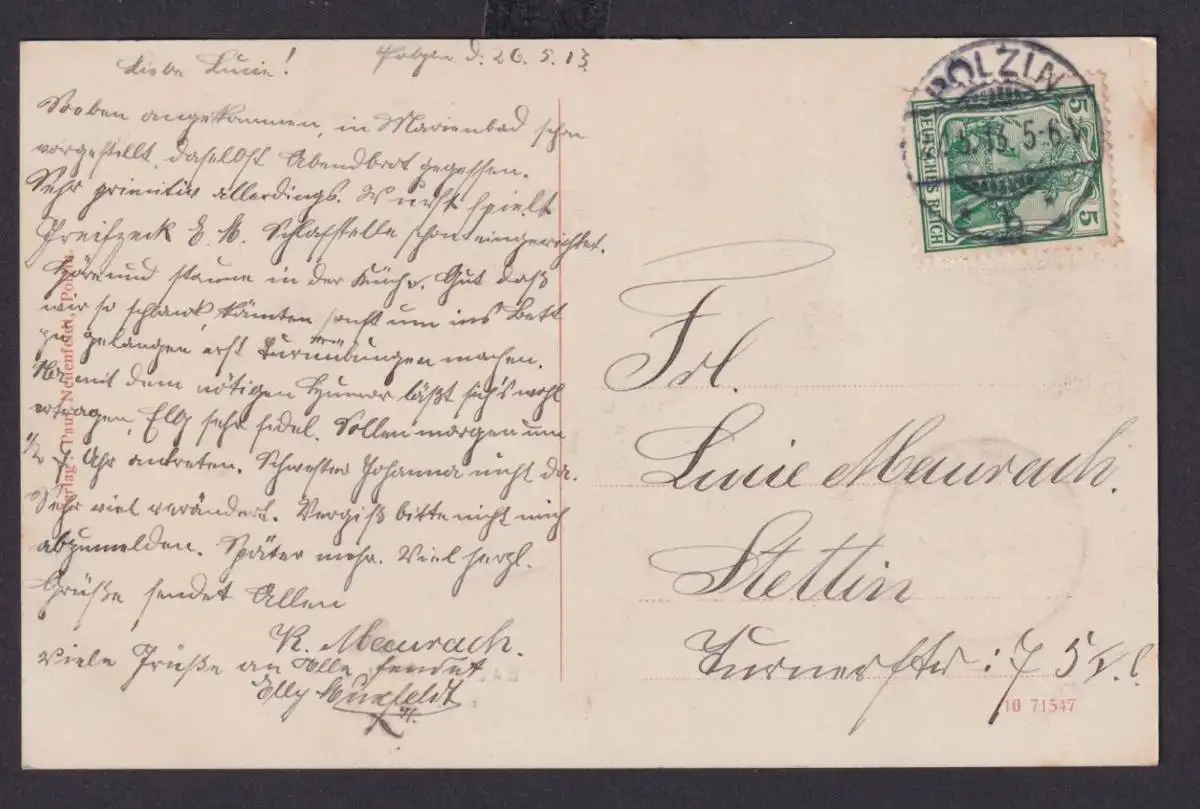 Polzin d. 26.5.13.
Liebe Lucie!
Soeben angekommen, in Marienbad schon
vorgestellt, daselbst Abendbrot gegessen.
Sehr primitiv allerdings. Wurst spielt
E. M. Schlafstelle schon eingerichtet.
Höre und staune in der Küche. Gut daß
wir so schlank kämten, sonst um ins Bett
zu gelangen erst Turnübungen machen.
Na mit dem nötigen Humor läßt sich's wohl
ertragen, Elly sehr fidel. Sollen morgen um
1/2 7 Uhr antreten. Schwester Johanna nicht da.
Sehr viel verändert. Vergiß bitte nicht mich
abzumelden. Später mehr. Viel herzl.
Grüße sendet Allen
K. Maurach.
Viele Grüße an Alle sendet
Elly
Verlag: Paul Neuenfeldt, Polzin
POLZIN
.5.13. 5-6 V
5
5
DEUTSCHES REICH
Frl.
Lucie Maurach.
Stettin
Turnerstr: 75
10 71547